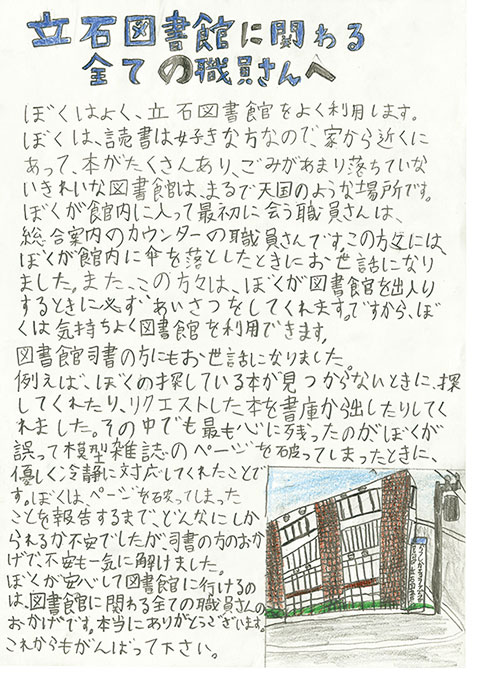 立石図書館に関わる
全ての職員さんへ
ぼくはよく、立石図書館をよく利用します。
ぼくは、読書は好きな方なので、家から近くに
あって、本がたくさんあり、ごみがあまり落ちていな
いきれいな図書館は、まるで天国のような場所です。
ぼくが館内に入って最初に会う職員さんは、
総合案内のカウンターの職員さんです。この方々には、
ぼくが館内に傘を落としたときにお世話になり
ました。また、この方々は、ぼくが図書館を出入り
するときに必ずあいさつをしてくれます。ですから、ぼく
は気持ちよく図書館を利用できます。
図書館司書の方にもお世話になりました。
例えば、ぼくの探している本が見つからないときに、探
してくれたり、リクエストした本を書庫から出したりしてく
れました。その中でも最も心に残ったのが、ぼくが
誤って模型雑誌のページを破ってしまったときに、
優しく冷静に対応してくれたことで
す。ぼくはページを破ってしまった
ことを報告するまで、どんなにしか
られるか不安でしたが、司書の方のおか
げで、不安も一気に解けました。
ぼくが安心して図書館に行けるの
は、図書館に関わる全ての職員さんの
おかげです。本当にありがとうございます。
これからもがんばって下さい。